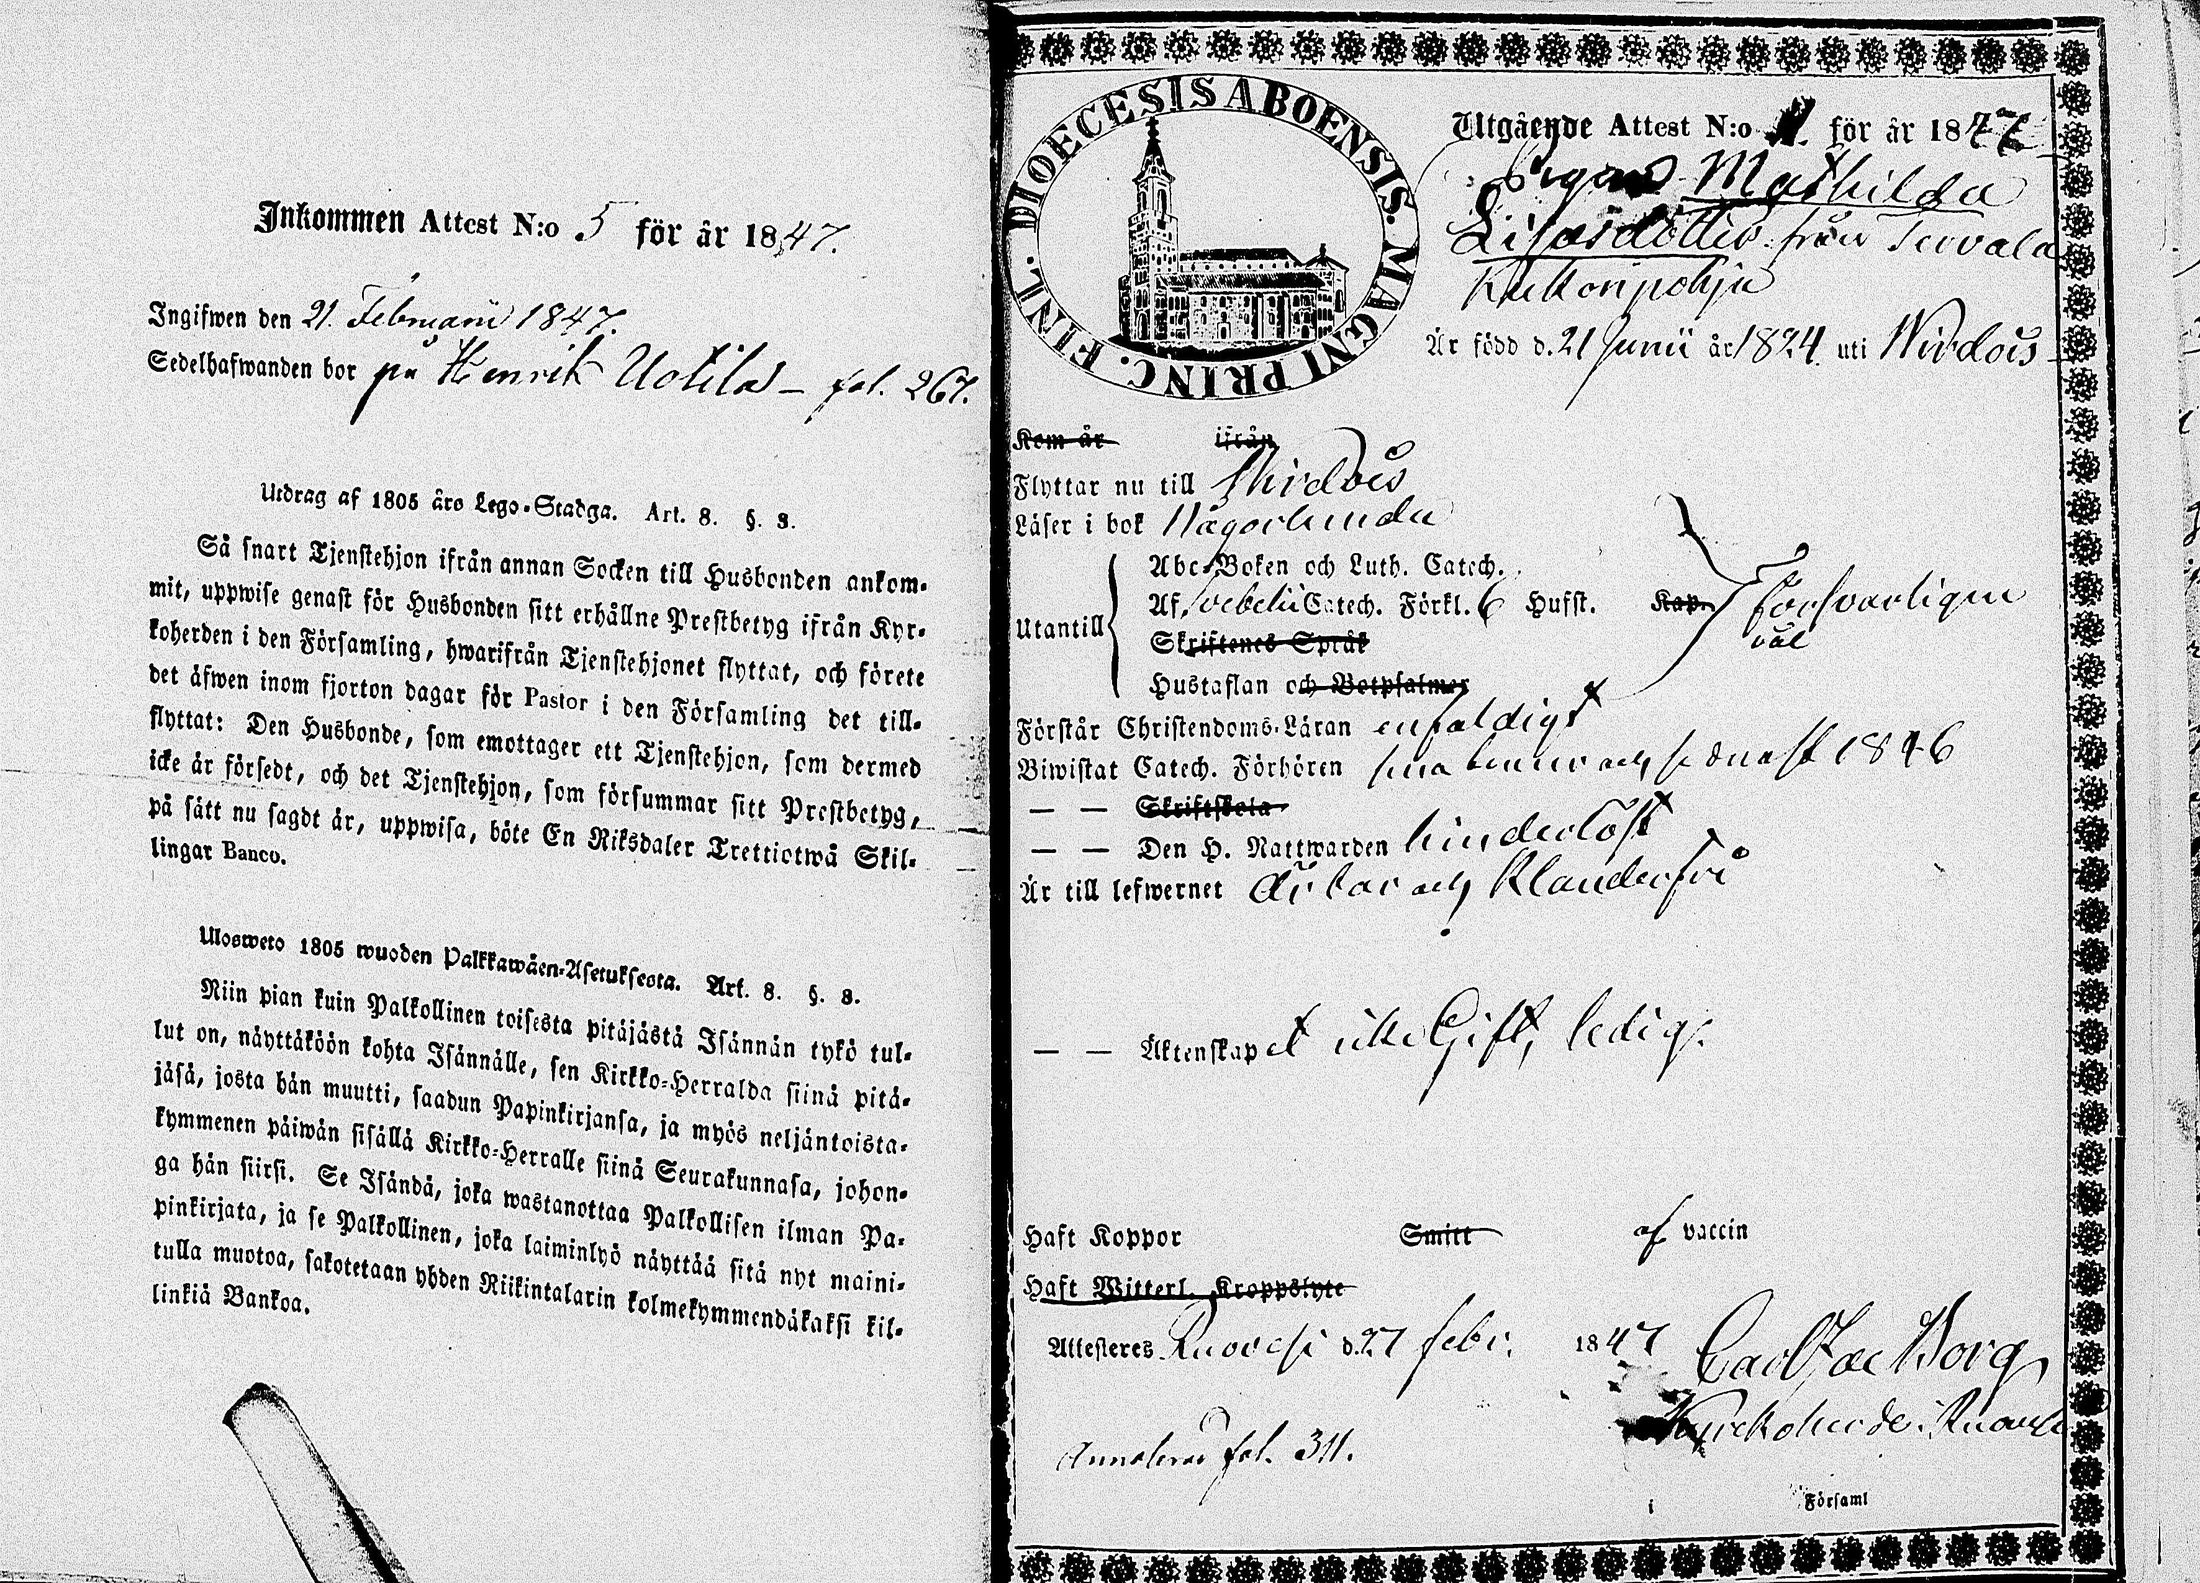 Inkommen Attest N:o 5 för år 1847.
Ingifwen den 21. Februarii 1847.
Sedelhafwanden bor på Henrik Uotila – fol. 267.
Utdrag af 1805 års Lego-Stadga. Art. 8. §. 3.
Så snart Tjenstehjon ifrån annan Socken till Husbonden ankom-
mit, uppwise genast för Husbonden sitt erhållne Prestbetyg ifrån Kyr-
koherden i den Församling, hwarifrån Tjenstehjonet flyttat, och förete
det äfwen inom fjorton dagar för Pastor i den Församling det till-
flyttat: Den Husbonde, som emottager ett Tjenstehjon, som dermed
icke är försedt, och det Tjenstehjon, som försummar sitt Prestbetyg,
på sätt nu sagdt är, uppwisa, böte En Riksdaler Trettiotwå Skil-
lingar Banco.
Ulosweto 1805 wuoden Palkkawäen-Asetuksesta. Art. 8. §. 3.
Niin pian kuin Palkollinen toisesta pitäjästä Isännän tykö tul-
lut on, näyttäköön kohta Isännälle, sen Kirkko-Herralda siinä pitä-
jäsä, josta hän muutti, saadun Papinkirjansa, ja myös neljäntoista-
kymmenen päiwän sisällä Kirkko-Herralle siinä Seurakunnasa, johon-
ga hän siirsi. Se Isändä, joka wastanottaa Palkollisen ilman Pa-
pinkirjata, ja se Palkollinen, joka laiminlyö näyttää sitä nyt maini-
tulla muotoa, sakotetaan yhden Riikintalarin kolmekymmendäkaksi kil-
linkiä Bankoa.
DIOECESIS ABOENSIS. MAGNI PRINC. FINL.
Utgående Attest N:o för år 1847
Pigan Mathilda
Lisasdotter från Tervala
Kukonpohja
Är född d. 21 Junii år 1824 uti Wirdois
Kom år ifrån
Flyttar nu till Wirdois
Läser i bok Någorlunda
Utantill
Abc-Boken och Luth. Catech.
Af Svebelii Catech. Förkl. 6 Hufst. Kap.
Försvarligen
väl
Skriftenes Språk
Hustaflan och Botpsalmer
Förstår Christendoms-Läran enfaldigt
Biwistat Catech. Förhören sina och sednast 1846
— — Skriftskola
— — Den H. Nattwarden hinderlöst
Är till lefwernet ärbar och klanderfri
— — Äktenskapet icke Gift, ledig.
Haft Koppor Smitt af vaccin
Haft Witterl. Kroppslyte
Attesteres Ruovesi d. 27 febr. 1847
Carl Jac Borg
Kyrkoherde i Ruovesi
fol. 311.
i Församl